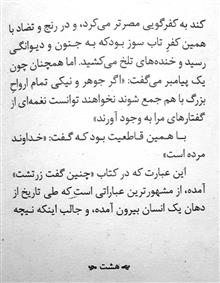 کند به کفرگویی مصرتر می‌کرد، و در رنج و تضاد با
همین کفر تاب سوز بود که به جنون و دیوانگی
رسید و خنده‌های تلخ می‌کشید. اما همچنان چون
یک پیامبر می‌گفت: «اگر جوهر و نیکی تمام ارواح
بزرگ با هم جمع شوند نخواهند توانست نغمه‌ای از
گفتارهای مرا به وجود آورند»
با همین قاطعیت بود که گفت: «خداوند
مرده است»
این عبارت که در کتاب «چنین گفت زرتشت»
آمده، از مشهورترین عباراتی است که طی تاریخ از
دهان یک انسان بیرون آمده، و جالب اینکه نیچه
هشت